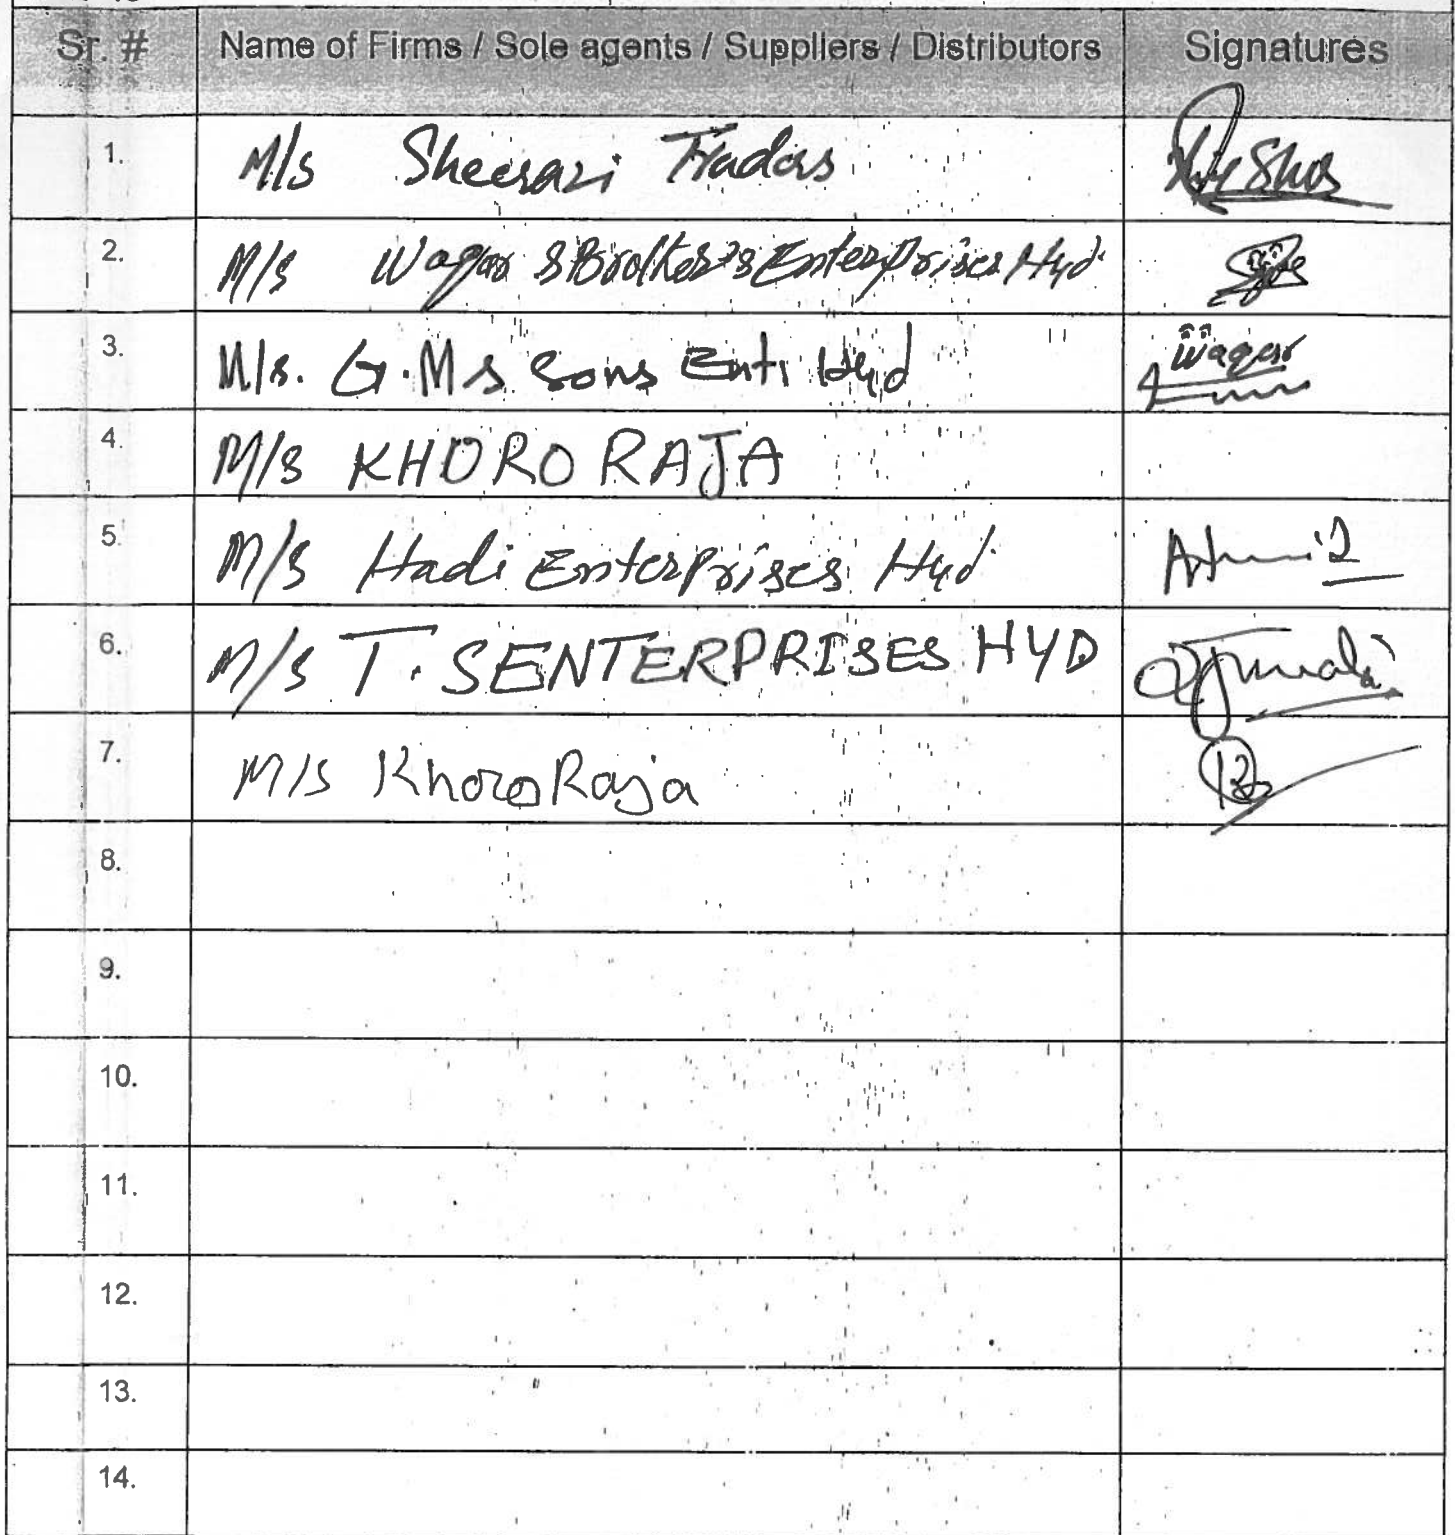 Sr. # Name of Firms / Sole agents / Suppliers / Distributors Signatures
1. M/s Sheerazi Traders
2. M/s Waqar & Brother's Enterprises Hyd
3. M/s. G.M & Sons Ent: Hyd Waqar
4. M/s KHORO RAJA
5. M/s Hadi Enterprises Hyd
6. M/s T.S ENTERPRISES HYD
7. M/s Khoro Raja
8.
9.
10.
11.
12.
13.
14.